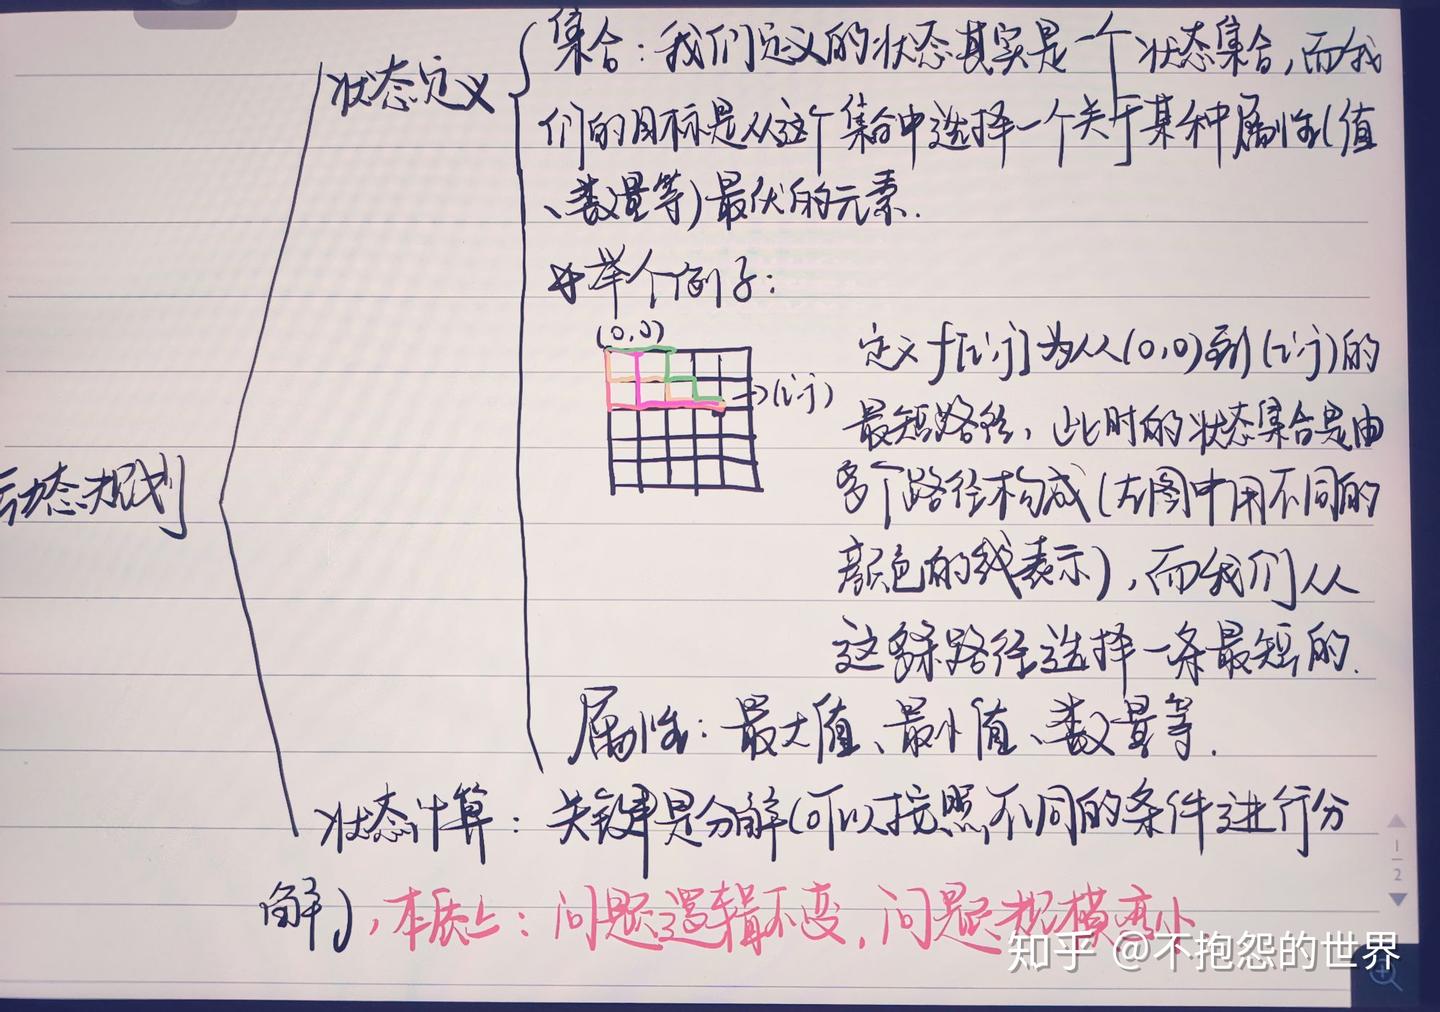 动态规划
状态定义
集合：我们定义的状态其实是一个状态集合，而我
们的目标是从这个集合中选择一个关于某种属性（值
、数量等）最优的元素.
举个例子：
(0,0)
→(i,j)
定义f[i,j]为从(0,0)到(i,j)的
最短路径，此时的状态集合是由
多个路径构成（左图中用不同的
颜色的线表示），而我们从
这多条路径选择一条最短的.
属性：最大值、最小值、数量等.
状态计算：关键是分解（可以按照不同的条件进行分
解），本质上：问题逻辑不变，问题规模变小
1
2
知乎 @不抱怨的世界